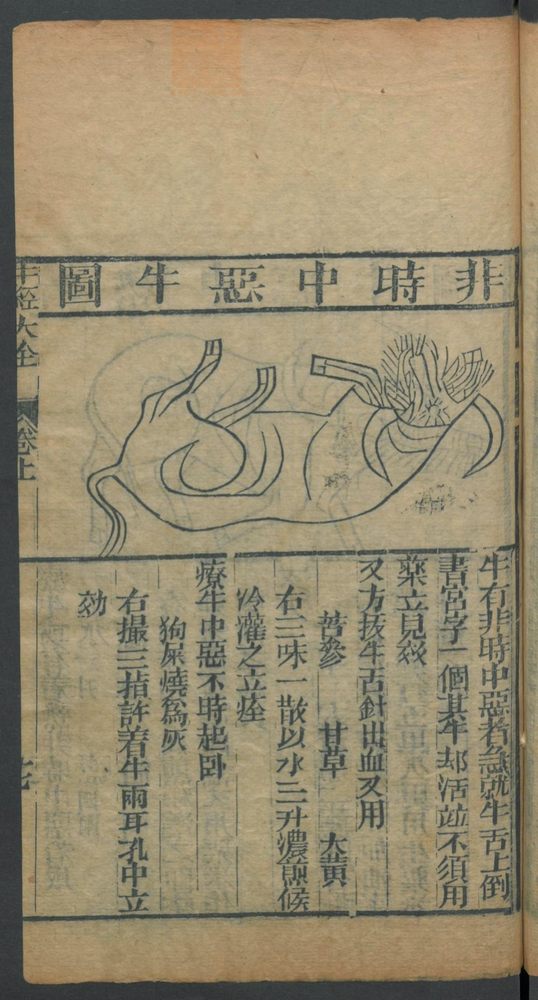 非時中惡牛圖
牛有非時中惡者急就牛舌上倒
書宫字一個其牛却活竝不須用
藥立見效
又方拔牛舌針出血又用
苦參 甘草 大黃
右三味一散以水三升濃煎候
冷灌之立痊
療牛中惡不時起卧
狗屎燒為灰
右撮三指許着牛兩耳孔中立
効
牛經大全
卷上